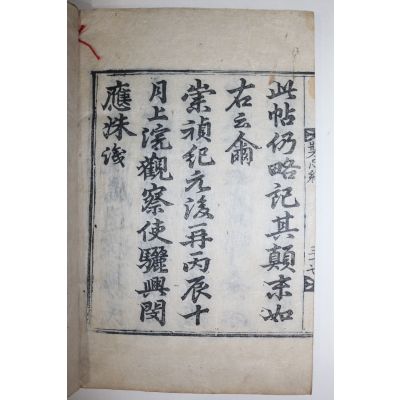 此帖仍略記其顛末如
右云爾
崇禎紀元後再丙辰十
月上浣觀察使驪興閔
應洙識